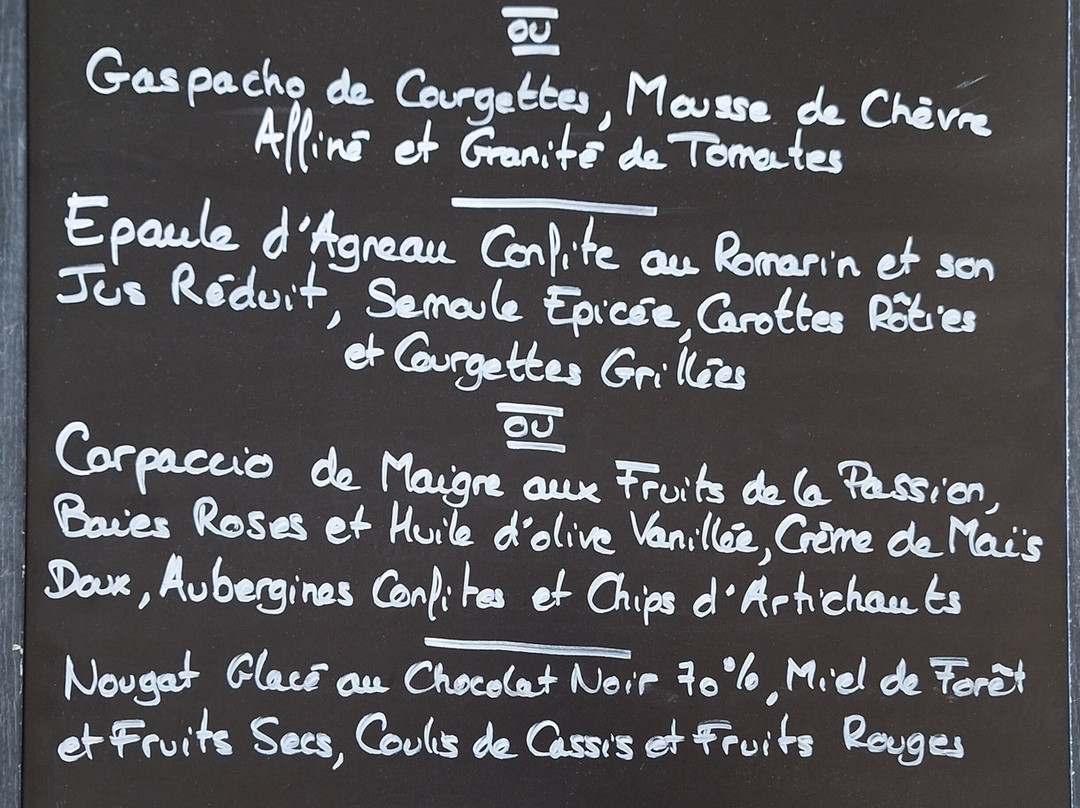 ou
Gaspacho de Courgettes, Mousse de Chèvre
Affiné et Granité de Tomates
Epaule d'Agneau Confite au Romarin et son
Jus Réduit, Semoule Epicée, Carottes Rôties
et Courgettes Grillées
ou
Carpaccio de Maigre aux Fruits de la Passion,
Baies Roses et Huile d'olive Vanillée, Crème de Maïs
Doux, Aubergines Confites et Chips d'Artichauts
Nougat Glacé au Chocolat Noir 70%, Miel de Forêt
et Fruits Secs, Coulis de Cassis et Fruits Rouges